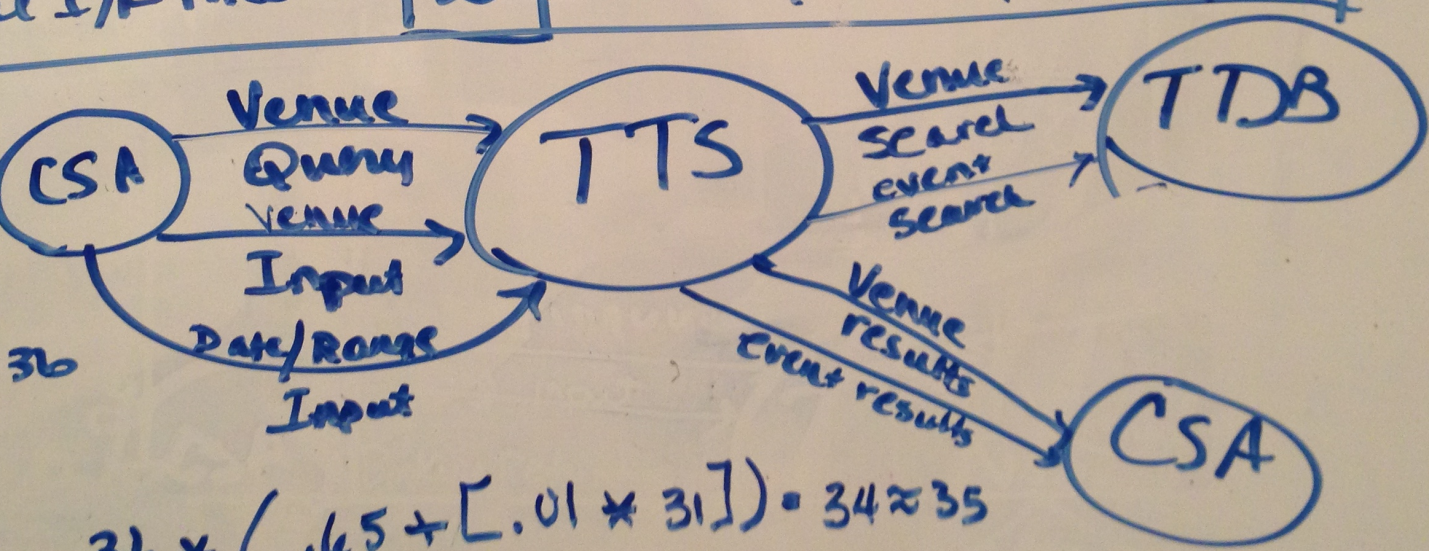 CSA
Venue
Query
Venue
Input
Date/Range
Input
TTS
Venue
Search
event
Search
TDB
Venue
results
event results
CSA
36
.65 + [.01 * 31]) = 34 ≈ 35